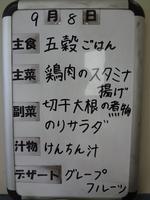 9月8日
主食 五穀ごはん
主菜 鶏肉のスタミナ
揚げ
副菜 切干大根の煮物
のりサラダ
汁物 けんちん汁
デザート グレープ
フルーツ